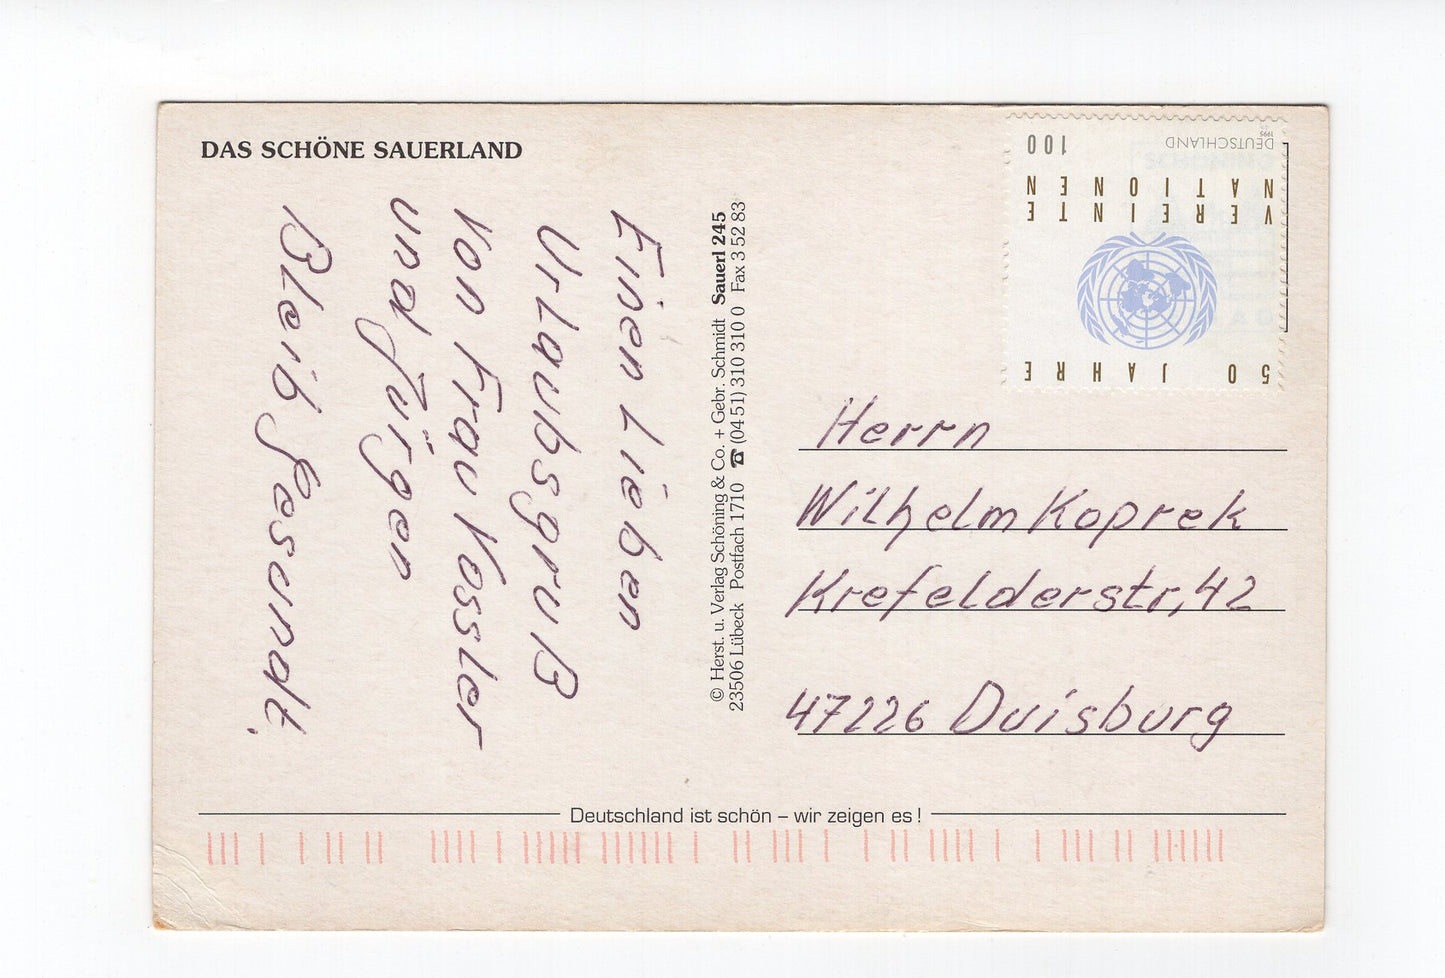 DAS SCHÖNE SAUERLAND
Einen Lieben
Urlaubsgruß
Von Frau Vossler
und Jürgen
Bleib Gesundt.
© Herst. u. Verlag Schöning & Co. + Gebr. Schmidt Sauerl 245
23506 Lübeck Postfach 1710 ☎ (04 51) 310 310 0 Fax 3 52 83
50 JAHRE
VEREINTE
NATIONEN
DEUTSCHLAND 100
1995
Herrn
Wilhelm Koprek
Krefelderstr, 42
47226 Duisburg
Deutschland ist schön – wir zeigen es !